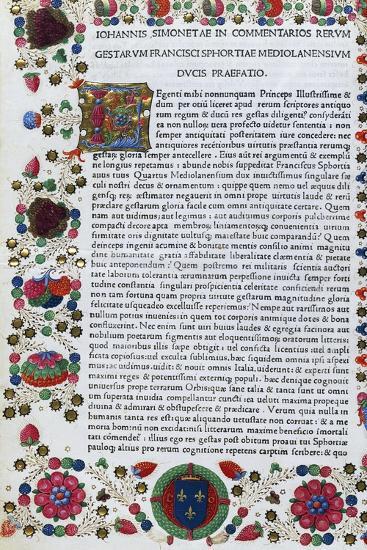 IOHANNIS SIMONETAE IN COMMENTARIOS RERVM
GESTARVM FRANCISCI SPHORTIAE MEDIOLANENSIVM
DVCIS PRAEFATIO.
Egenti mihi nonnunquam Princeps Illustrissime &
dum per otiũ liceret apud rerum scriptores antiquo
rum regum & ducũ res gestas diligenti⁹ consyderãti
ea non nullos tenere profecto uidetur sententia: non
semper antiquitati posteritatem iure concedere: nec
antiquiores recẽtioribus uirtutis præstantia rerumq;
gestarũ gloria semper antecellere. Eius aũt rei argumẽtũ & exemplũ
ne longius repetamus: abunde nobis suppeditat Franciscus Sphortia
auus tuus Quartus Mediolanensium dux inuictissimus singulare sæ
culi nostri decus & ornamentum: quippe quem nemo uel æquus dili
gensq; res æstimator negauerit in omni prope uirtutis laude & rerũ
præclare gestarum gloria facile cum omni antiquitate certare. Quem
nam aut uidimus: aut legimus: aut audiuimus corporis pulcherrime
compacti decore apta membrorum liniamentorumq; conuenientia uirium
firmitate oris dignitate uultusq; maiestate huic comparandũ? Quem
deinceps ingenii acumine & bonitate mentis consilio animi magnitu
dine humanitate gratia affabilitate liberalitate clæmentia & pietate
huic anteponendum? Quem postremo rei militaris scientia auctori
tate laborum tolerantia ærumnarum perpessione inuicta semper forti
tudine constantia singulari prospicientia celeritate conficiendi rerum
non tam fortuna quam propria uirtute gestarum magnitudine gloria
felicitate usqueadeo excelluisse reperiemus? Nempe aut rarissimos aut
nullum potius inuenies: in quem tot corporis animique dotes & bona
confluxerint. Nec enim sunt uiri huius laudes & egregia facinora aut
nobilium poetarum figmentis aut eloquentissimorum oratorum litteris:
quod maioribus illis sæpe obtigit: uel conficta licentius: uel ampli
ficata copiosius: uel exculta sublimius, hæc siquidem omnia ipsi aspexi
mus: audiuimus. uidit & nouit omnis Italia. uiderunt: & experti sunt
maximi reges & potentissimi externorum populi. hæc denique cognouit
uniuersus prope terrarum Orbis: quæ sane talia & tanta sunt ut omnes
um superata inuidia compellantur cuncti tam eius uel maxima propeque
diuina & admirari & obstupescere & prædicare. Verum quia nulla in
humanis tanta res est: quæ aliquando uetustate non corruat: & a me
moria hominũ non excidat: nisi litterarum maxime beneficio immortali
tati cõmendet̃: illius ego res gestas post obitum proaui tui Sphortiæ
paulo altius pro rerum cognitione repetens carptim scribere: & quo